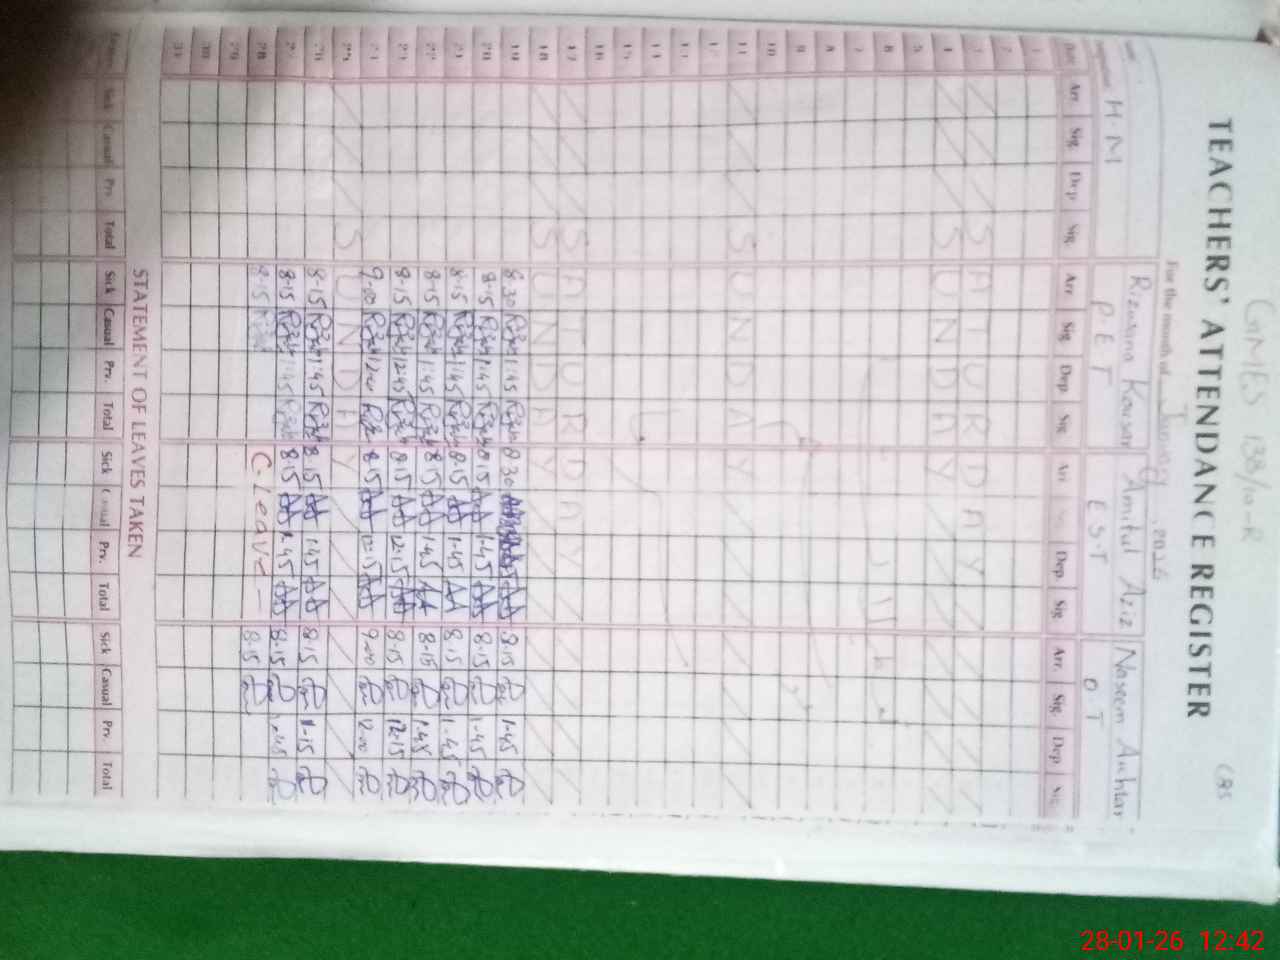 GGMES 138/10-R
TEACHERS' ATTENDANCE REGISTER
For the month of January, 2026
H.M Rizwana Kousar Amitul Aziz Naseem Akhtar
P.E.T E.S.T O.T
Date Arr. Sig. Dep Sig. Arr Sig. Dep Sig Arr Dep. Sig Arr. Sig. Dep
1
2
3 SATURDAY
4 SUNDAY
5
6
7
8
9
10
11 SUNDAY
12
13
14
15
16
17 SATURDAY
18 SUNDAY
19 8:30 1:45 8:30 8:15 1-45
20 8:15 1:45 8:15 1-45 8:15 1-45
21 8:15 1:45 8:15 1-45 8:15 1-45
22 8:15 1:45 8:15 1-45 8-15 1-45
23 8:15 12:45 8:15 12:15 8:15 12:15
24 9:00 12:00 8:15 12:15 9:00 12:00
25 SUNDAY
26 8:15 1:45 8:15 1-45 8:15 1-15
27 8:15 1:45 8:15 1:45 8:15 1:45
28 8:15 C.Leave 8:15
29
30
31
STATEMENT OF LEAVES TAKEN
Sick Casual Prv. Total Sick Casual Prv. Total Sick Casual Prv. Total Sick Casual Prv. Total
28-01-26 12:42